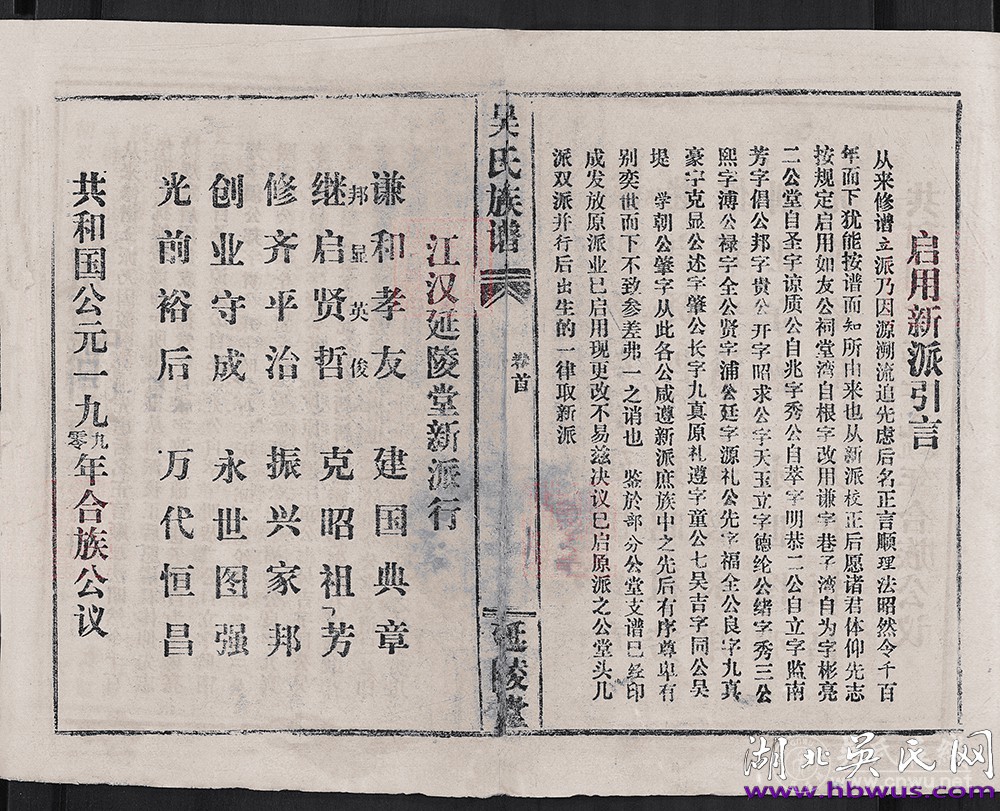 启用新派引言
从来修谱立派乃因源溯流追先虑后名正言顺理法昭然令千百
年而下犹能按谱而知所由来也从新派校正后愿诸君体仰先志
按规定启用如友公祠堂湾自根字改用谦字巷子湾自为字彬亮
二公堂自圣字谅质公自兆字秀公自萃字明恭二公自立字监南
芳字倡公邦字贵公开字昭求公字天玉立字德纶公绪字秀三公
熙字溥公禄字全公贤字浦公廷字源礼公先字福全公良字九真
豪字克显公述字肇公长字九真原礼遵字童公七吴吉字同公吴
堤 学朝公肇字从此各公咸遵新派庶族中之先后有序尊卑有
别奕世而下不致参差弗一之诮也 鉴於部分公堂支谱已经印
成发放原派业已启用现更改不易兹决议已启原派之公堂头几
派双派并行后出生的一律取新派
吴氏族谱
卷首
延陵堂
江汉延陵堂新派行
谦和孝友 建国典章
邦显英俊
继启贤哲 克昭祖芳
修齐平治 振兴家邦
创业守成 永世图强
光前裕后 万代恒昌
共和国公元一九九零年合族公议
湖北吴氏网
www.cnwu.net
www.hbwus.com